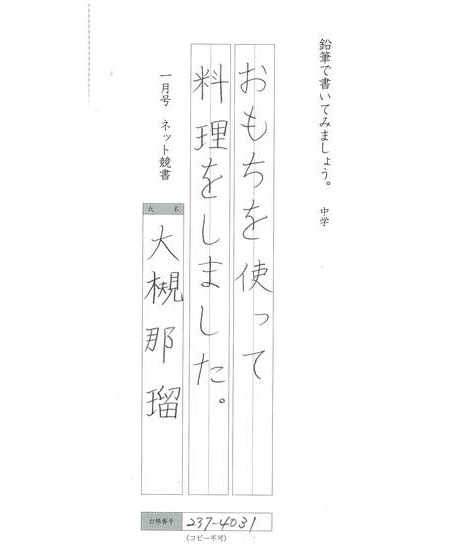 鉛筆で書いてみましょう。 中学
おもちを使って
料理をしました。
一月号 ネット競書
氏名
大槻那瑠
台帳番号 237-4031
(コピー不可)